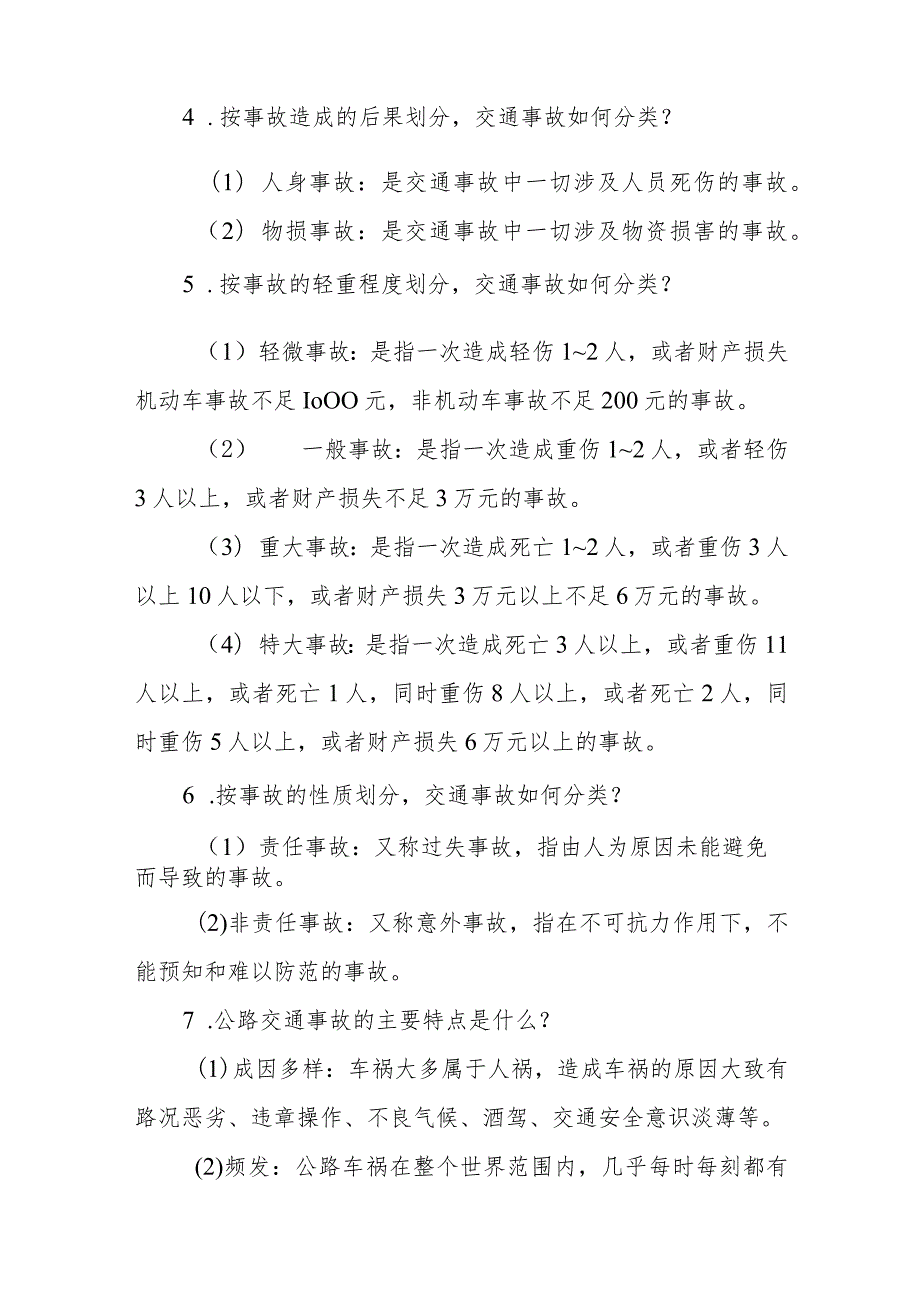 4 .按事故造成的后果划分，交通事故如何分类？
（1）人身事故：是交通事故中一切涉及人员死伤的事故。
（2）物损事故：是交通事故中一切涉及物资损害的事故。
5 .按事故的轻重程度划分，交通事故如何分类？
（1）轻微事故：是指一次造成轻伤1~2人，或者财产损失
机动车事故不足IoOO元，非机动车事故不足200元的事故。
（2） 一般事故：是指一次造成重伤1~2人，或者轻伤
3人以上，或者财产损失不足3万元的事故。
（3）重大事故：是指一次造成死亡1~2人，或者重伤3人
以上10人以下，或者财产损失3万元以上不足6万元的事故。
（4）特大事故：是指一次造成死亡3人以上，或者重伤11
人以上，或者死亡1人，同时重伤8人以上，或者死亡2人，同
时重伤5人以上，或者财产损失6万元以上的事故。
6 .按事故的性质划分，交通事故如何分类？
（1）责任事故：又称过失事故，指由人为原因未能避免
而导致的事故。
(2)非责任事故：又称意外事故，指在不可抗力作用下，不
能预知和难以防范的事故。
7 .公路交通事故的主要特点是什么？
(1)成因多样：车祸大多属于人祸，造成车祸的原因大致有
路况恶劣、违章操作、不良气候、酒驾、交通安全意识淡薄等。
(2)频发：公路车祸在整个世界范围内，几乎每时每刻都有